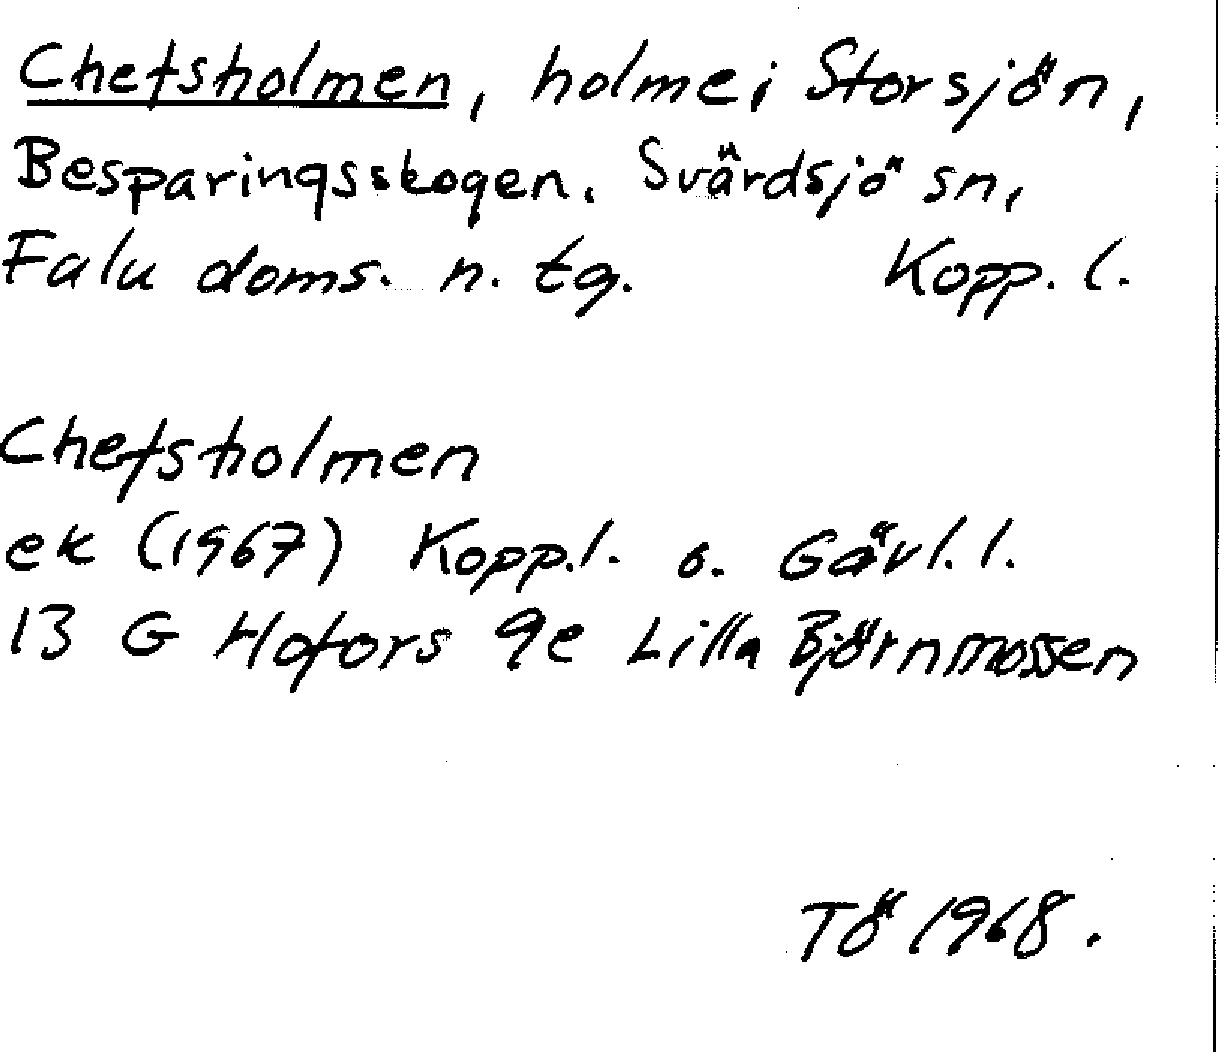 Chefsholmen, holme i Storsjön,
Besparingsskogen. Svärdsjö sn,
Falu doms. n. tg. Kopp. l.
Chefsholmen
ek (1967) Kopp.l. o. Gävl. l.
13 G Hofors 9e Lilla Björnmossen
TÖ 1968.